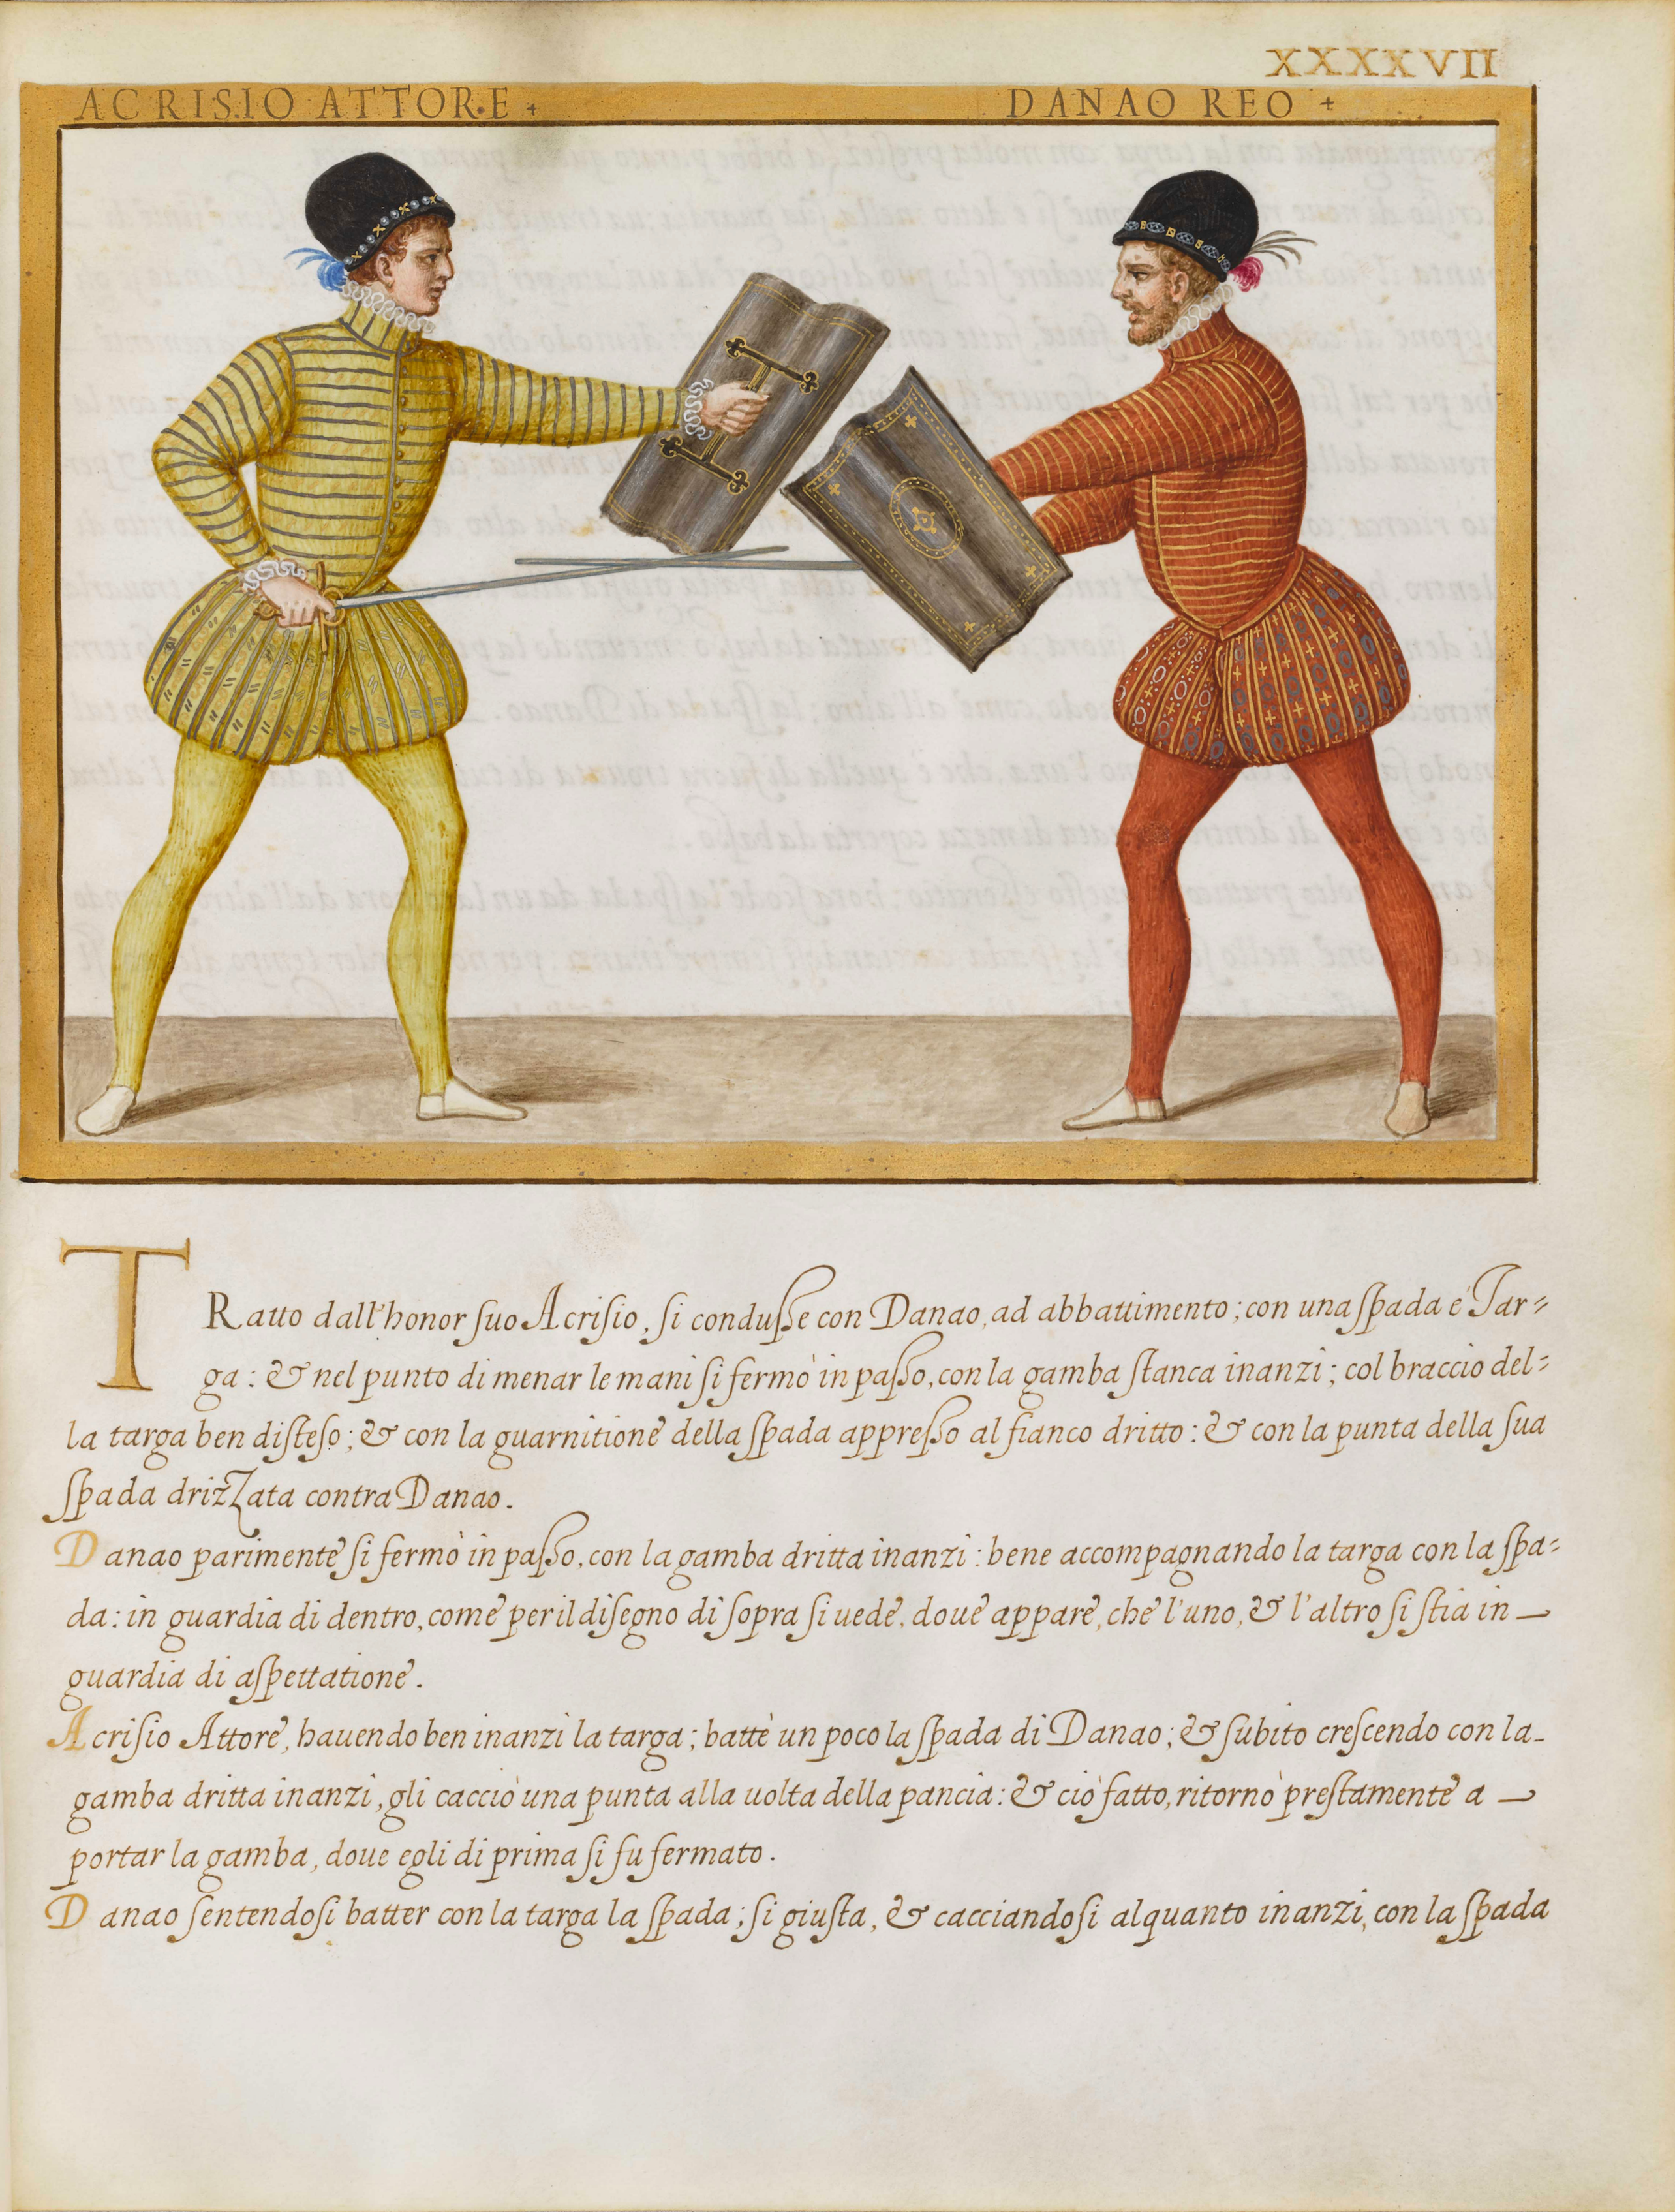 XXXXVII
ACRISIO ATTORE + DANAO REO +
TRatto dall'honor suo Acrisio, si condusse con Danao, ad abbattimento; con una spada e Tar=
ga: & nel punto di menar le mani si fermò in passo, con la gamba stanca inanzi; col braccio del=
la targa ben disteso; & con la guarnitione della spada appresso al fianco dritto: & con la punta della sua
spada drizzata contra Danao.
Danao parimente si fermò in passo, con la gamba dritta inanzi: bene accompagnando la targa con la spa=
da: in guardia di dentro, come per il disegno di sopra si uede, doue appare, che l'uno, & l'altro si stia in
guardia di aspettatione.
Acrisio Attore, hauendo ben inanzi la targa; battè un poco la spada di Danao; & subito crescendo con la
gamba dritta inanzi, gli cacciò una punta alla uolta della pancia: & ciò fatto, ritornò prestamente a
portar la gamba, doue egli di prima si fu fermato.
Danao sentendosi batter con la targa la spada; si giusta, & cacciandosi alquanto inanzi, con la spada